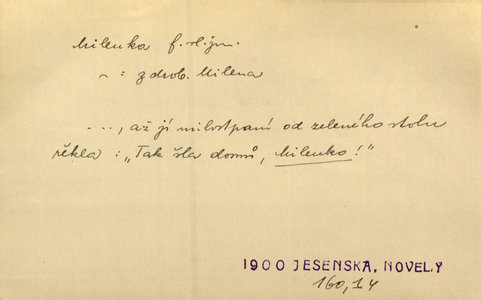 Milenka f. vl. jm.
~ : zdrob. Milena
..., až jí milostpaní od zeleného stolu
řekla : „Tak šla domů, Milenko!"
1900 JESENSKÁ, NOVELY
160,14